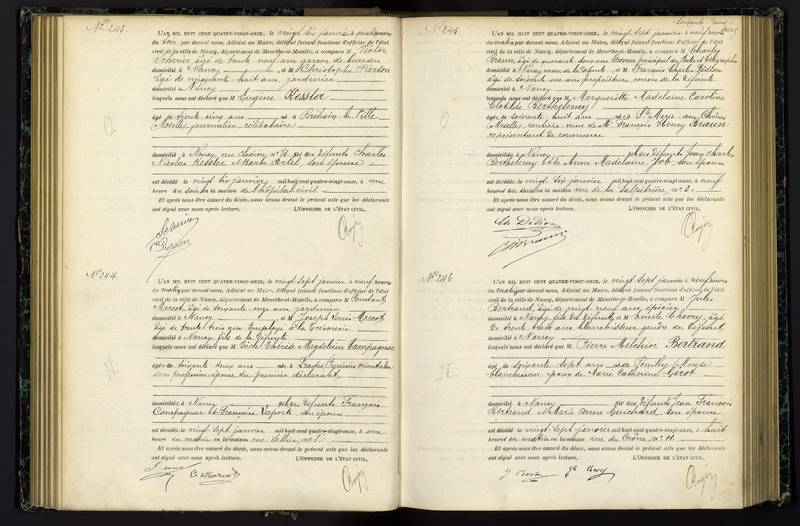 N° 243.
L'AN MIL HUIT CENT QUATRE-VINGT-ONZE, le vingt six janvier à
du soir par devant nous, Adjoint au Maire, délégué faisant fonctions d'officier de l'état
civil de la ville de Nancy, département de Meurthe-et-Moselle, a comparu M Victor
âgé de trente neuf ans garçon de bureau
domicilié à Nancy et M Christophe Pierson
âgé de cinquante huit ans, jardinier
domicilié à Nancy
lesquels nous ont déclaré que M Eugène Kessler
âgé de trente cinq ans né à Bréhain la Ville
Moselle, journalier, célibataire
domicilié à Nancy, rue Clodion, n° fils des défunts Charles
Nicolas Kessler et Marie Ortel, son épouse
est décédé le vingt six janvier mil huit cent quatre-vingt-onze, à une
heure du soir en la maison de l'hôpital civil
Et après nous être assuré du décès, nous avons dressé le présent acte que les déclarants
ont signé avec nous après lecture. L'OFFICIER DE L'ÉTAT CIVIL,
N° 244.
L'AN MIL HUIT CENT QUATRE-VINGT-ONZE, le vingt sept janvier à neuf heures
du matin par devant nous, Adjoint au Maire, délégué faisant fonctions d'officier de l'état
civil de la ville de Nancy, département de Meurthe-et-Moselle, a comparu M Constant
Marcot, âgé de soixante onze ans, jardinier
domicilié à Nancy et M Joseph Louis Marcot
âgé de trente trois ans Employé à la Trésorerie
domicilié à Nancy, fils de la défunte
lesquels nous ont déclaré que M Thérèse Magdelaine Campagnac
âgée de soixante deux ans née à Prades Pyrénées orientales
sans profession épouse du premier déclarant
domiciliée à Nancy fille des défunts François
Campagnac et Françoise Laporte, son épouse
est décédée le vingt sept janvier mil huit cent quatre-vingt-onze, à une
heure du matin en la maison rue Sellier, n°
Et après nous être assuré du décès, nous avons dressé le présent acte que les déclarants
ont signé avec nous après lecture. L'OFFICIER DE L'ÉTAT CIVIL,
N° 245
L'AN MIL HUIT CENT QUATRE-VINGT-ONZE, le vingt sept janvier à neuf heures
du matin par devant nous, Adjoint au Maire, délégué faisant fonctions d'officier de l'état
civil de la ville de Nancy, département de Meurthe-et-Moselle, a comparu M Charles
Braun, âgé de quarante deux ans, Commis principal des Postes et Télégraphes
domicilié à Nancy et M François Charles
âgé de soixante un ans propriétaire, cousin de la défunte
domicilié à Nancy
lesquels nous ont déclaré que M Marguerite Madelaine Caroline
Clotilde Berthelemy
âgée de soixante huit ans née à Ste Marie aux Chênes
Moselle, rentière, veuve de Mr François Henry Braun
représentant de commerce
domiciliée à Nancy fille des défunts Jean Charles
Berthelemy et de Anne Madelaine Job, son épouse
est décédée le vingt six janvier mil huit cent quatre-vingt-onze, à neuf
heures du soir en la maison rue de la Salpétrière, n° 3.
Et après nous être assuré du décès, nous avons dressé le présent acte que les déclarants
ont signé avec nous après lecture. L'OFFICIER DE L'ÉTAT CIVIL,
N° 246
L'AN MIL HUIT CENT QUATRE-VINGT-ONZE, le vingt sept janvier à neuf heures
du matin par devant nous, Adjoint au Maire, délégué faisant fonctions d'officier de l'état
civil de la ville de Nancy, département de Meurthe-et-Moselle, a comparu M Jules
Bertrand, âgé de vingt neuf ans, épicier
domicilié à Nancy, fils du défunt et M Emile Thevry, âgé
de trente ans blanchisseur gendre du défunt
domicilié à Nancy
lesquels nous ont déclaré que M Pierre Melchior Bertrand
âgé de soixante sept ans né à Pouilly Meuse
blanchisseur, époux de Marie Catherine Girot
domicilié à Nancy fils des défunts Jean François
Bertrand et Marie Anne Guichard, son épouse
est décédé le vingt sept janvier mil huit cent quatre-vingt-onze, à huit
heures du matin en la maison rue du Crône, n° 11
Et après nous être assuré du décès, nous avons dressé le présent acte que les déclarants
ont signé avec nous après lecture. L'OFFICIER DE L'ÉTAT CIVIL,